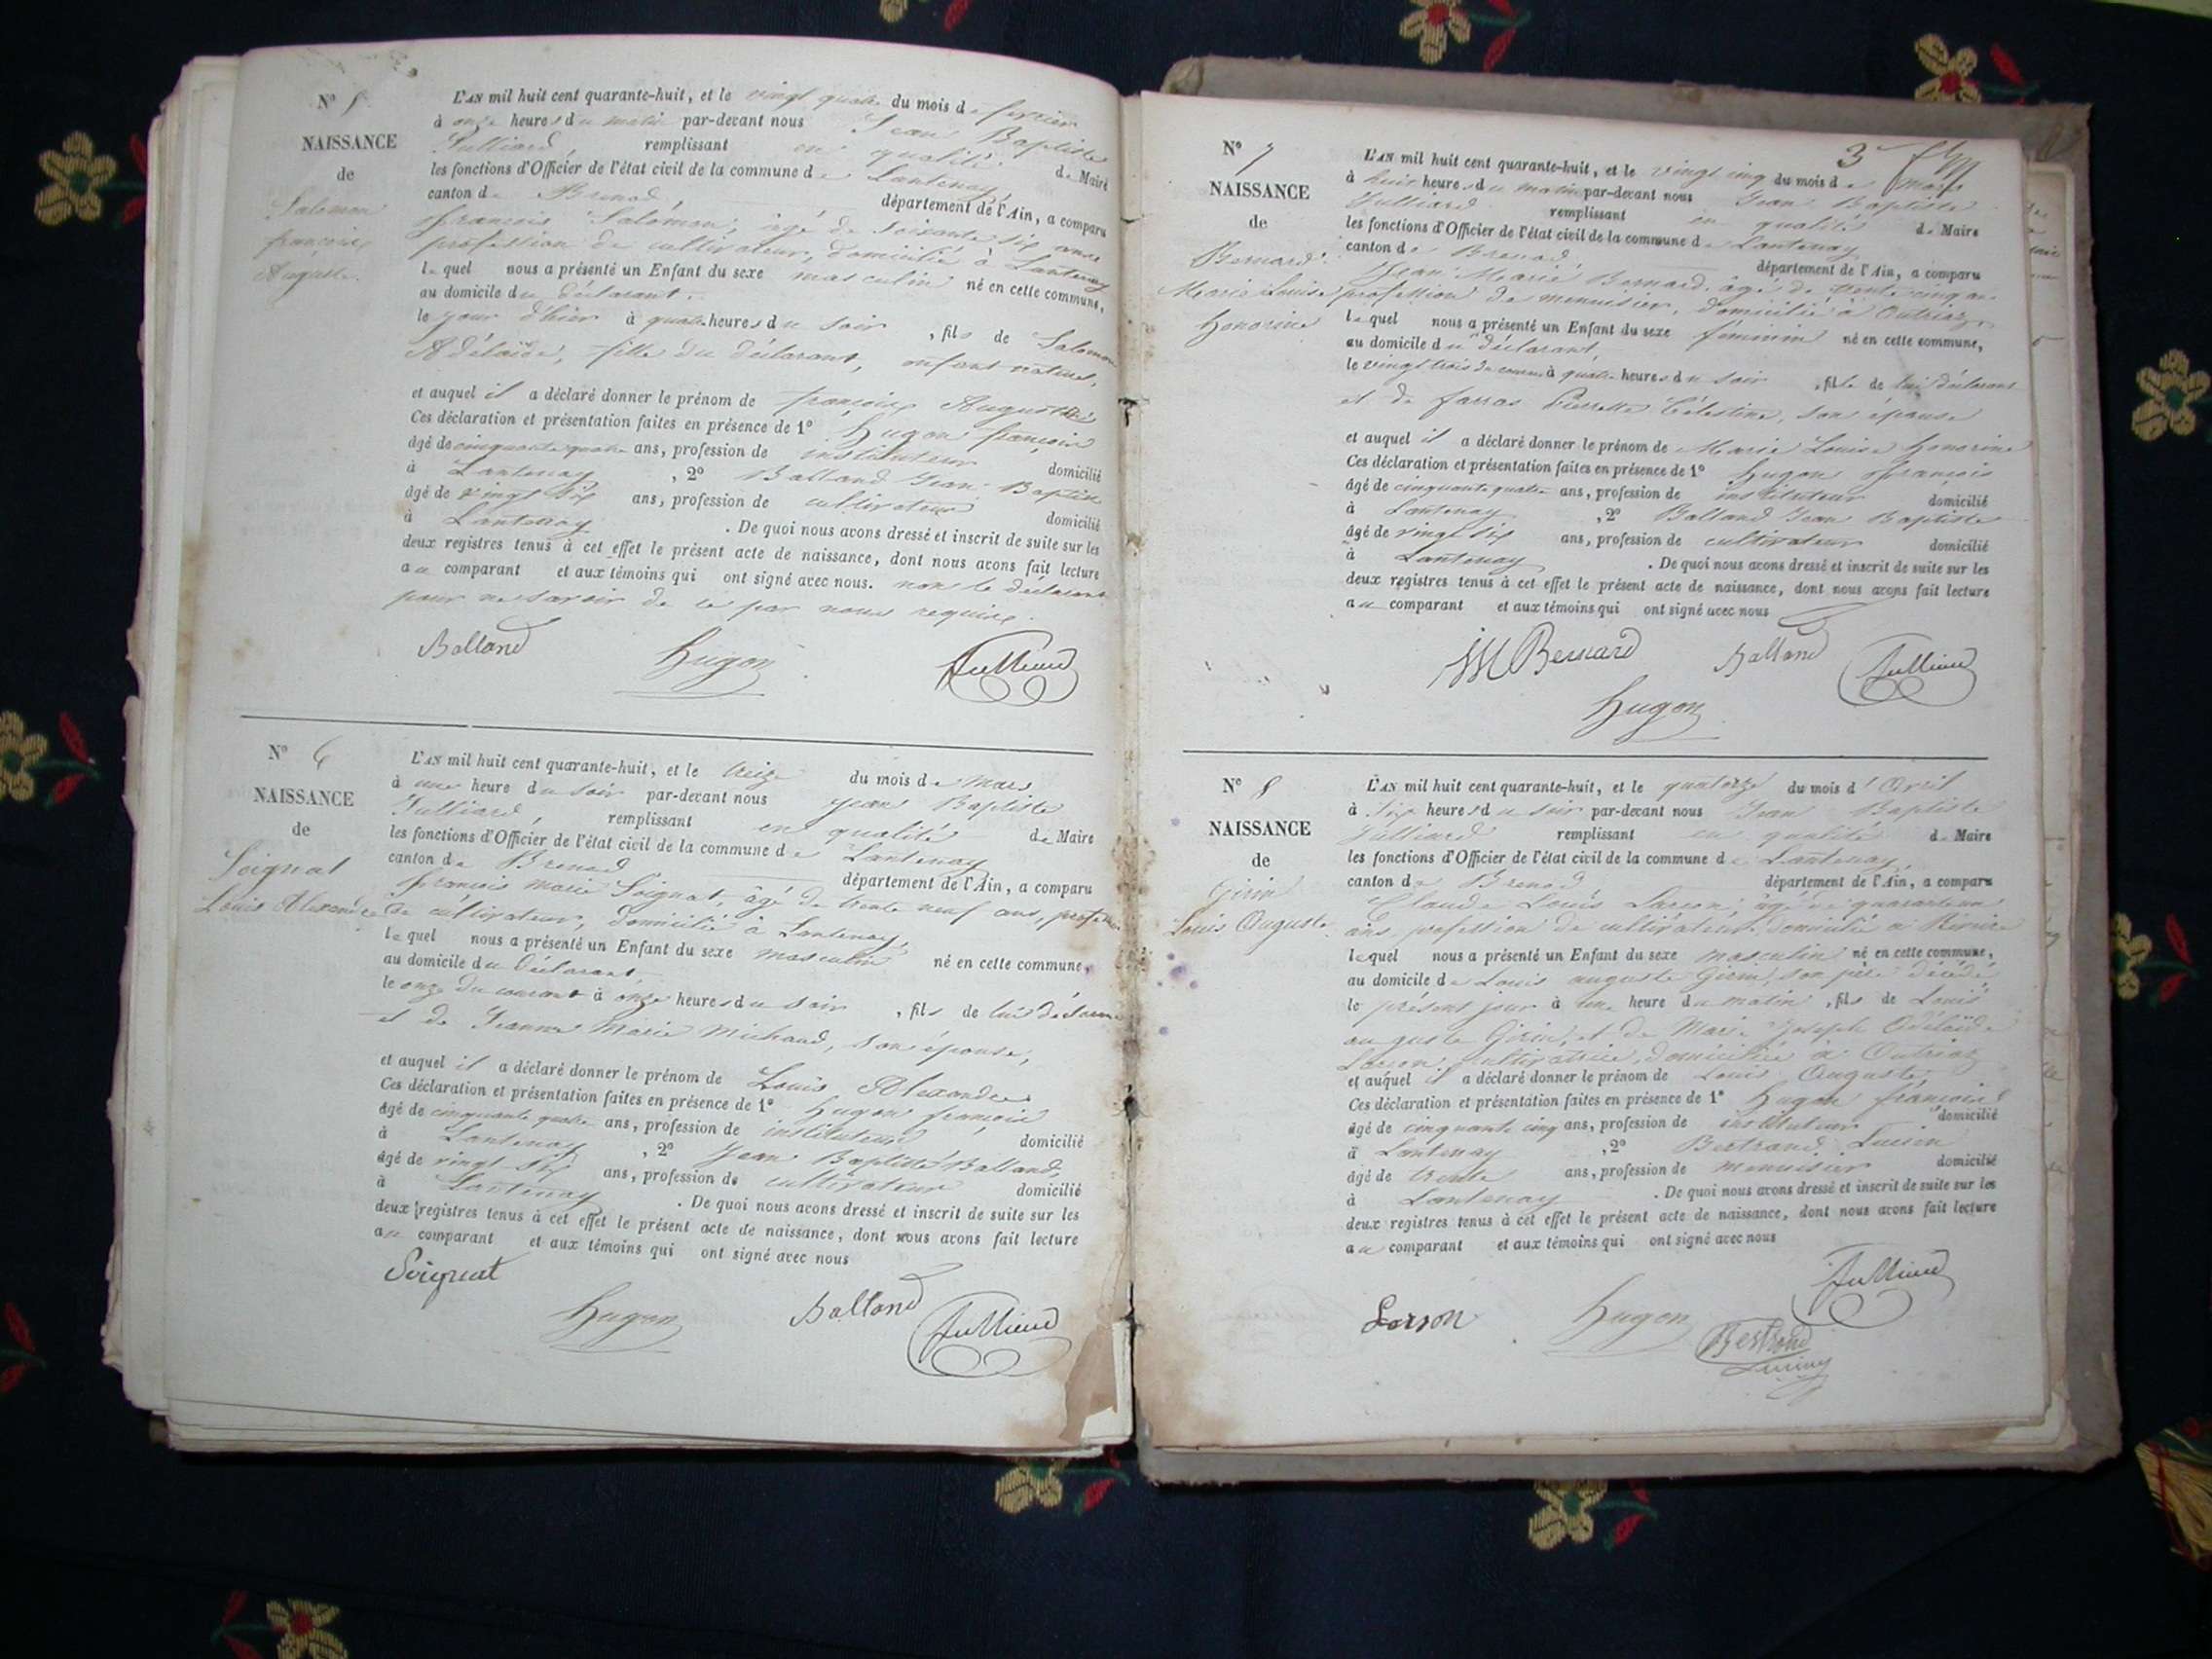 N° 5
NAISSANCE
de
Salomon
françois
Auguste.
L'AN mil huit cent quarante-huit, et le vingt quatre du mois de février
à onze heures du matin par-devant nous Jean Baptiste
Julliard, remplissant en qualité de Maire
les fonctions d'Officier de l'état civil de la commune de Lantenay,
canton de Brenod département de l'Ain, a comparu
françois Salomon, âgé de soixante six ans
profession de cultivateur, domicilié à Lantenay
lequel nous a présenté un Enfant du sexe masculin né en cette commune,
au domicile du déclarant.
le jour d'hier à quatre heures du soir, fils de Salomon
Adélaïde, fille du déclarant, enfant naturel,
et auquel il a déclaré donner le prénom de françois Auguste
Ces déclaration et présentation faites en présence de 1° Hugon françois
âgé de cinquante quatre ans, profession de instituteur domicilié
à Lantenay, 2° Balland Jean Baptiste
âgé de vingt six ans, profession de cultivateur domicilié
à Lantenay. De quoi nous avons dressé et inscrit de suite sur les
deux registres tenus à cet effet le présent acte de naissance, dont nous avons fait lecture
au comparant et aux témoins qui ont signé avec nous. non le déclarant
pour ne savoir de ce par nous requis.
Balland Hugon Julliard
N° 6
NAISSANCE
de
Soignat
Louis Alexandre
L'AN mil huit cent quarante-huit, et le treize du mois de mars
à une heure du soir par-devant nous Jean Baptiste
Julliard, remplissant en qualité de Maire
les fonctions d'Officier de l'état civil de la commune de Lantenay
canton de Brenod département de l'Ain, a comparu
françois marie Soignat, âgé de trente neuf ans, profession
de cultivateur, domicilié à Lantenay,
lequel nous a présenté un Enfant du sexe masculin né en cette commune,
au domicile du déclarant
le onze du courant à onze heures du soir, fils de lui déclarant
et de Jeanne Marie Michaud, son épouse,
et auquel il a déclaré donner le prénom de Louis Alexandre
Ces déclaration et présentation faites en présence de 1° Hugon françois
âgé de cinquante quatre ans, profession de instituteur domicilié
à Lantenay, 2° Jean Baptiste Balland,
âgé de vingt six ans, profession de cultivateur domicilié
à Lantenay. De quoi nous avons dressé et inscrit de suite sur les
deux registres tenus à cet effet le présent acte de naissance, dont nous avons fait lecture
au comparant et aux témoins qui ont signé avec nous
Soignat Hugon Balland Julliard
3
N° 7
NAISSANCE
de
Bernard
Marie Louise
honorine
L'AN mil huit cent quarante-huit, et le vingt cinq du mois de mars
à huit heures du matin par-devant nous Jean Baptiste
Julliard remplissant en qualité de Maire
les fonctions d'Officier de l'état civil de la commune de Lantenay
canton de Brenod département de l'Ain, a comparu
Jean Marie Bernard, âgé de trente cinq ans
profession de menuisier, domicilié à Outriaz,
lequel nous a présenté un Enfant du sexe féminin né en cette commune,
au domicile du déclarant,
le vingt trois du courant à quatre heures du soir, fille de lui déclarant
et de farras Pierrette Célestine, son épouse
et auquel il a déclaré donner le prénom de Marie Louise honorine
Ces déclaration et présentation faites en présence de 1° Hugon françois
âgé de cinquante quatre ans, profession de instituteur domicilié
à Lantenay, 2° Balland Jean Baptiste
âgé de vingt six ans, profession de cultivateur domicilié
à Lantenay. De quoi nous avons dressé et inscrit de suite sur les
deux registres tenus à cet effet le présent acte de naissance, dont nous avons fait lecture
au comparant et aux témoins qui ont signé avec nous
JM Bernard Balland Julliard
Hugon
N° 8
NAISSANCE
de
Girin
Louis Auguste
L'AN mil huit cent quarante-huit, et le quatorze du mois d'Avril
à six heures du soir par-devant nous Jean Baptiste
Julliard remplissant en qualité de Maire
les fonctions d'Officier de l'état civil de la commune de Lantenay,
canton de Brenod département de l'Ain, a comparu
Claude Louis Larson, âgé de quarante un
ans, profession de cultivateur, domicilié à
lequel nous a présenté un Enfant du sexe masculin né en cette commune,
au domicile de Louis auguste Girin, son père décédé,
le présent jour à une heure du matin, fils de Louis
auguste Girin, et de Marie Joseph Adélaïde
Larson, cultivatrice, domiciliée à Outriaz
et auquel il a déclaré donner le prénom de Louis Auguste
Ces déclaration et présentation faites en présence de 1° Hugon françois
âgé de cinquante cinq ans, profession de instituteur domicilié
à Lantenay, 2° Bertrand Lucien
âgé de trente ans, profession de menuisier domicilié
à Lantenay. De quoi nous avons dressé et inscrit de suite sur les
deux registres tenus à cet effet le présent acte de naissance, dont nous avons fait lecture
au comparant et aux témoins qui ont signé avec nous
Julliard
Larson Hugon Bertrand